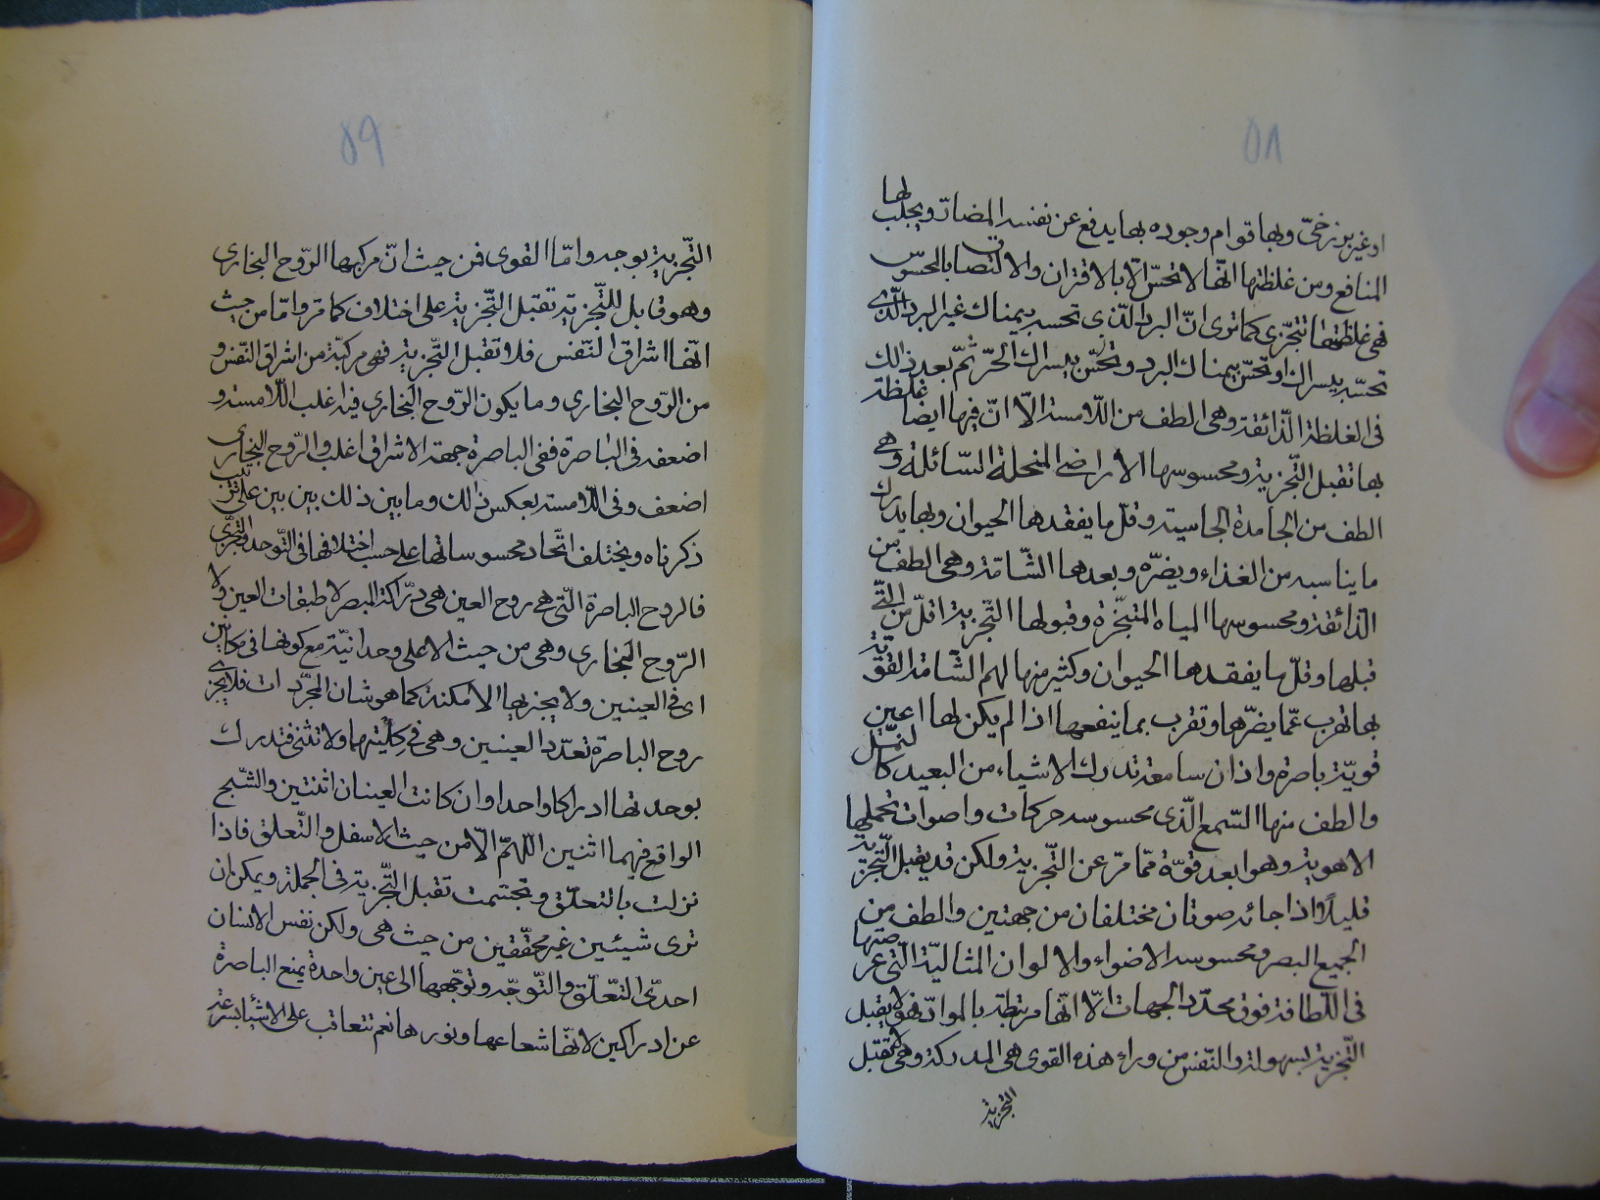 ٥٨
او غير برزخيّ وبها قوام وجوده بها يدفع عن نفسه المضارّ ويجلب لها
المنافع ومن غلظتها انّها لا تحسّ الّا بالاقتران والالتصاق بالمحسوس
فهي غلظتها تتجزّى كما ترى انّ البرد الّذي تحسه بيمناك غير البرد الّذي
تحسّه بيسراك او تحسّ بيمناك البرد وتحسّ بيسراك الحرّ ثمّ بعد ذلك
في الغلظة الذّائقة وهي الطف من اللّامسة الّا انّ فيها ايضا غلظة
بها تقبل التّجزية ومحسوسها الاراضي المنحلة السّائلة وهي
الطف من الجامدة الجاسية وقلّ ما يفقدها الحيوان وبها يدرك
ما يناسبه من الغذاء ويضرّه وبعدها الشّامّة وهي الطف من
الذّائقة ومحسوسها المياه المتبخّرة وقبولها التّجزية اقلّ من الّتي
قبلها وقلّ ما يفقدها الحيوان وكثير منها لهم الشّامّة القويّة
بها تهرب عمّا يضرّها وتقرب بما ينفعها اذا لم يكن لها اعين
قويّة باصرة واذان سامعة تدرك الاشياء من البعيد كالنّمل
والطف منها السّمع الّذي محسوسه حركات واصوات تحملها
الاهوية وهو ابعد قوّة ممّا مرّ عن التّجزية ولكن قد يقبل التّجزية
قليلاً واذا جائه صوتان مختلفان من جهتين والطف من
الجميع البصر ومحسوسه الاضواء والالوان المثاليّة الّتي عرصتها
في اللّطافة فوق محدّد الجهات الّا انّها مرتبطة بالموادّ فهو لا يقبل
التّجزية بسهولة والنّفس من وراء هذه القوى هي المدركة وهي لا تقبل
التجزية
٥٩
التّجزية بوجه وامّا القوى فمن حيث انّ مركبها الرّوح البخاري
وهو قابل للتّجزية تقبل التّجزية على اختلاف كما مرّ وامّا من حيث
انّها اشراق النّفس فلا تقبل التّجزية فهي مركبة من اشراق النّفس و
من الرّوح البخاري وما يكون الرّوح البخاري فيه اغلب اللّامسة و
اضعفه في الباصرة ففي الباصرة جهة الاشراق اغلب والرّوح البخاري
اضعف وفي اللّامسة بعكس ذالك وما بين ذلك بين بين على ترتيب
ذكرناه ويختلف اتّحاد محسوساتها على حسب اختلافها في التّوحد والتجزّي
فالروح الباصرة الّتي هي روح العين هي درّاكة البصر لا طبقات العين ولا
الرّوح البخاري وهي من حيث الاعلى وحدانيّة مع كونها في مكانين
اي في العينين ولا يجزيها الامكنة كما هو شان المجرّدات فلا يجزي
روح الباصرة تعدّد العينين وهي في كليتهما ولا تثنى فتدرك
بوحدتها ادراكا واحدا وان كانت العينان اثنتين والشّبح
الواقع فيهما اثنين اللّهمّ الّا من حيث الاسفل والتّعلق فاذا
نزلت بالتعلّق وتجسّمت تقبل التّجزية في الجملة ويمكن ان
ترى شيئين غير محقّقين من حيث هي ولكن نفس الانسان
احديّ التعلّق والتّوجّه وتوجّهها الى عين واحدة يمنع الباصرة
عن ادراكين لانّها شعاعها ونورها نعم تتعاقب على الاشياء بسرعة